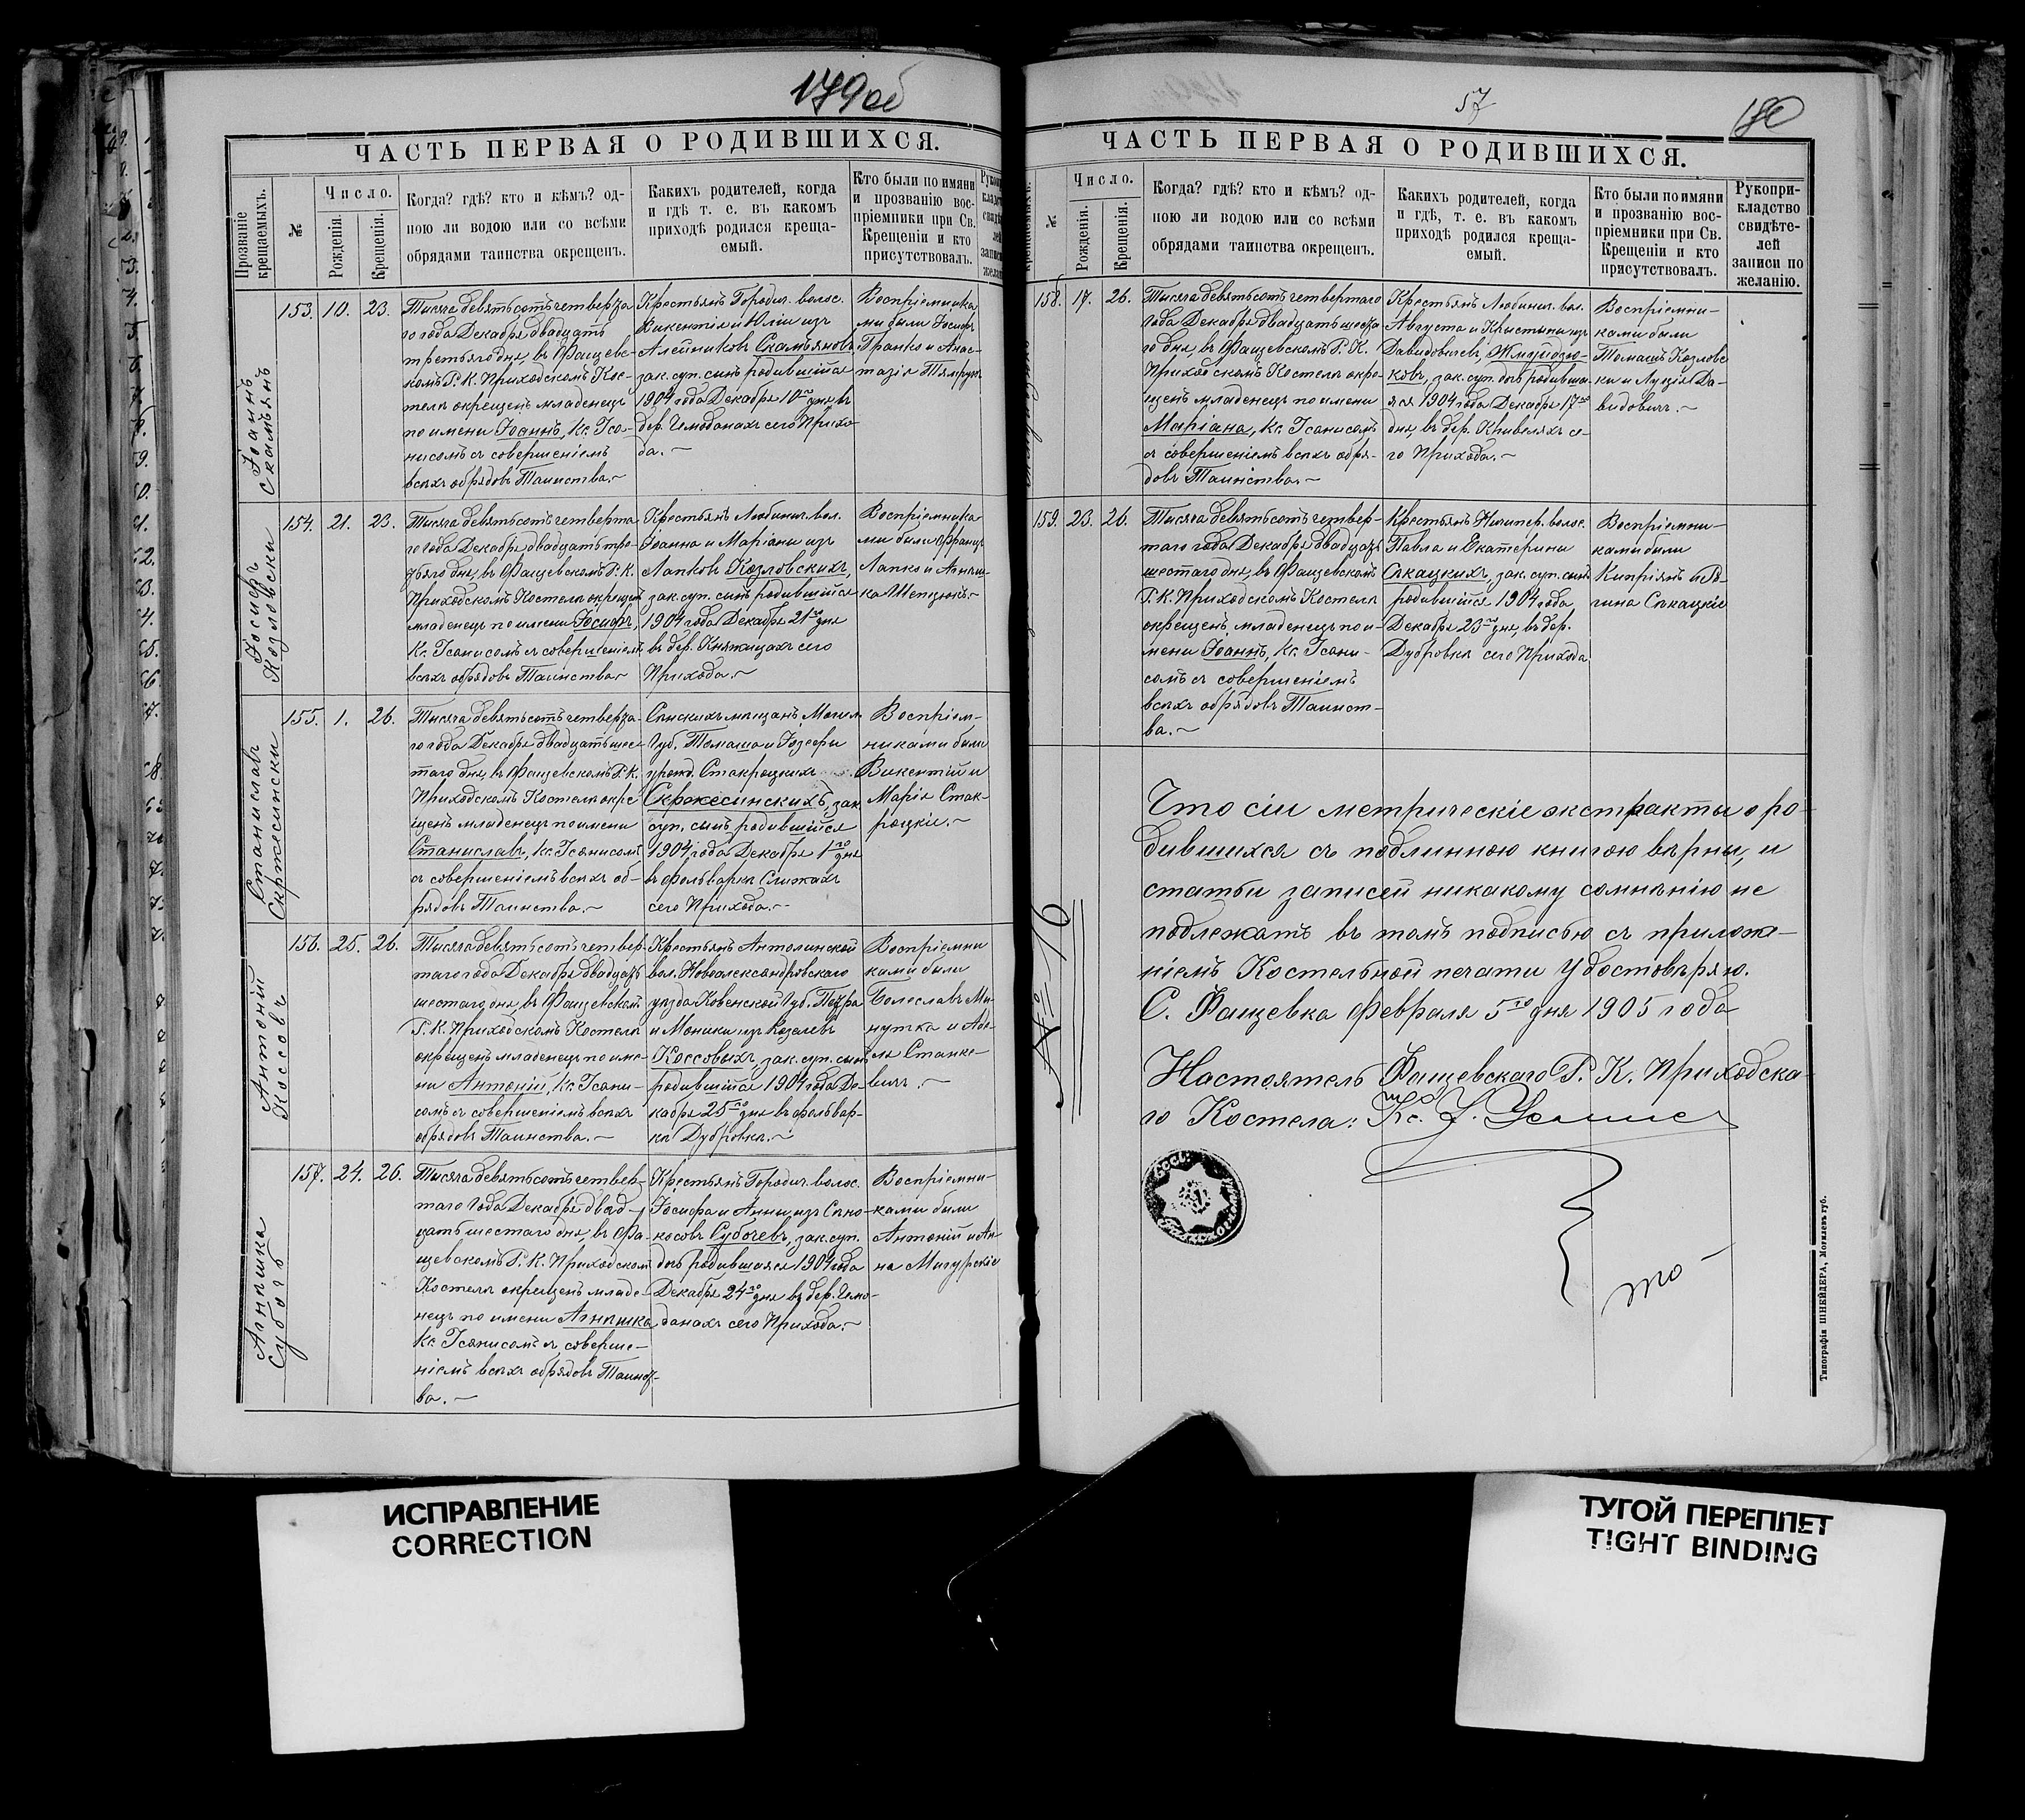 179об
ЧАСТЬ ПЕРВАЯ О РОДИВШИХСЯ.
Прозваніе крещаемыхъ.
№
Число.
Рожденія.
Крещенія.
Когда? гдѣ? кто и кѣмъ? од-
ною ли водою или со всѣми
обрядами таинства окрещенъ.
Какихъ родителей, когда
и гдѣ т. е. въ какомъ
приходѣ родился креща-
емый.
Кто были по имяни
и прозванію вос-
пріемники при Св.
Крещеніи и кто
присутствовалъ.
Іоаннъ
Скамьянъ
153. 10. 23.
Тысяча девятьсотъ четверта
го года Декабря двадцать
третьяго дня, въ Фащевс-
комъ Р. К. Приходскомъ Кос-
телѣ окрещенъ младенецъ
по имени Іоаннъ, Кс. Гса-
нисомъ съ совершеніемъ
всѣхъ обрядовъ Таинства.~
Крестьянъ Городич. волос.
Викентія и Юліи изъ
Алейниковъ Скамьяновъ
зак. суп. сынъ родившійся
1904 года Декабря 10го дня въ
дер. Чемоданахъ сего Прихо-
да.~
Воспріемника
ми были Іосифъ
Гранко и Анас-
тазія
Іосифъ
Козловски
154. 21. 23.
Тысяча девятьсотъ четверта
го года Декабря двадцать тре-
тьяго дня, въ Фащевскомъ Р. К.
Приходскомъ Костелѣ окрещенъ
младенецъ по имени Іосифъ,
Кс. Гсанисомъ съ совершеніемъ
всѣхъ обрядовъ Таинства.~
Крестьянъ Любинич. вол.
Іоанна и Маріанны изъ
Лапковъ Козловскихъ,
зак. суп. сынъ родившійся
1904 года Декабря 21го дня
въ дер. Княжицахъ сего
Прихода.~
Воспріемника
ми были Францъ
Лапко и Агнѣш-
ка Шепцюкъ.~
Станиславъ
Скржесински
155. 1. 26.
Тысяча девятьсотъ четверта-
го года Декабря двадцать шес-
того дня, въ Фащевскомъ Р. К.
Приходскомъ Костелѣ окре
щенъ младенецъ по имени
Станиславъ, Кс. Гсанисомъ
съ совершеніемъ всѣхъ об-
рядовъ Таинства.~
Сѣнскихъ мѣщанъ, Могил.
Губ. Томаша и Іозефы
урожд. Стакроцкихъ
Скржесинскихъ, зак.
суп. сынъ родившійся
1904 года Декабря 1го дня
въ фольваркѣ Слижахъ
сего Прихода.~
Воспріем-
никами были
Викентій и
Марія Стак-
роцкіе.~
Антоній
Коссовъ
156. 25. 26.
Тысяча девятьсотъ четвер-
таго года Декабря двадцать
шестаго дня, въ Фащевскомъ
Р. К. Приходскомъ Костелѣ
окрещенъ младенецъ по име-
ни Антоній, Кс. Гсани-
сомъ съ совершеніемъ всѣхъ
обрядовъ Таинства.~
Крестьянъ Антолинской
вол. Новоалександровского
уѣзда Ковенской Губ. Петра
и Моники изъ Козелевъ
Коссовыхъ, зак. суп. сынъ
родившійся 1904 года Де-
кабря 25го дня въ фольвар-
кѣ Дубровкѣ.~
Воспріемни
ками были
Болеславъ Ми-
нутка и Аде-
ль Станке-
вичъ.~
Агнѣшка
Субочъ
157. 24. 26.
Тысяча девятьсотъ четвер-
таго года Декабря двад-
цать шестаго дня, въ Фа-
щевскомъ Р. К. Приходскомъ
Костелѣ окрещенъ младе-
нецъ по имени Агнѣшка
Кс. Гсанисомъ съ соверше-
ніемъ всѣхъ обрядовъ Таинст-
ва.~
Крестьянъ Городич. волос.
Іосифа и Анны изъ Сѣно-
косовъ Субочевъ, зак. суп.
дочь родившаяся 1904 года
Декабря 24го дня въ дер. Чемо-
данахъ сего Прихода.~
Воспріемни-
ками были
Антоній и Ан-
на Мигурскіе
57
180
ЧАСТЬ ПЕРВАЯ О РОДИВШИХСЯ.
№
Число.
Рожденія.
Крещенія.
Когда? гдѣ? кто и кѣмъ? од-
ною ли водою или со всѣми
обрядами таинства окрещенъ.
Какихъ родителей, когда
и гдѣ, т. е. въ какомъ
приходѣ родился креща-
емый.
Кто были по имяни
и прозванію вос-
пріемники при Св.
Крещеніи и кто
присутствовалъ.
Рукопри-
кладство
свидѣте-
лей
записи по
желанію.
158. 17. 26.
Тысяча девятьсотъ четвертаго
года Декабря двадцать шеста
го дня, въ Фащевскомъ Р. К.
Приходскомъ Костелѣ окре-
щенъ младенецъ по имени
Маріана, Кс. Гсанисомъ
съ совершеніемъ всѣхъ обря-
довъ Таинства.~
Крестьянъ Любинич. вол.
Августа и Крыстыны изъ
Давидовичевъ, Жмуйдзю-
ковъ, зак. суп. дочь родивша-
яся 1904 года Декабря 17го
дня, въ дер. Кривеляхъ се-
го Прихода.~
Воспріемни-
ками были
Томашъ Козловс
ки и Луція Да-
видовичъ.~
159. 23. 26.
Тысяча девятьсотъ четвер-
таго года Декабря двадцать
шестаго дня, въ Фащевскомъ
Р. К. Приходскомъ Костелѣ
окрещенъ, младенецъ по и-
мени Іоаннъ, Кс. Гсани-
сомъ съ совершеніемъ
всѣхъ обрядовъ Таинст-
ва.~
Крестьянъ Ничипер. волос.
Павла и Екатерины
Сѣкацкихъ, зак. суп. сынъ
родившійся 1904 года
Декабря 23го дня, въ дер.
Дубровкѣ сего Прихода
Воспріемни-
ками были
Кипріянъ и Ре-
гина Сѣкацкіе
№ 16
Что сіи метрическіе экстракты о ро-
дившихся съ подлинною книгою вѣрны, и
статьи записей никакому сомнѣнію не
подлежатъ въ томъ подписью съ прилож-
ніемъ Костельной печати удостовѣряю.
С. Фащевка Февраля 5го дня 1905 года
Настоятель Фащевскаго Р. К. Приходска-
го Костела: Кс.
Типографія ШНЕЙДЕРА, Могилевъ губ.
ИСПРАВЛЕНИЕ
CORRECTION
ТУГОЙ ПЕРЕПЛЕТ
TIGHT BINDING